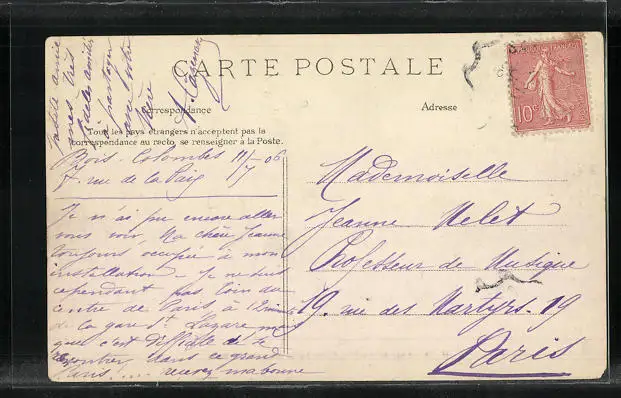 CARTE POSTALE
Correspondance
Adresse
Tous les pays étrangers n'acceptent pas la
correspondance au recto, se renseigner à la Poste.
Bois-Colombes 11/7 06
7 rue de la Paix
Je n'ai pu encore aller
vous voir, Ma chère Jeanne
toujours occupée à mon
installation. Je ne suis
cependant pas loin du
centre de Paris à 12
de la gare St Lazare
que c'est difficile de se
rencontrer dans ce grand
Paris!.... recevez ma bonne
petite amie
mes très
amitiés
à partager
avec votre
Mère
Mademoiselle
Jeanne Melet
Professeur de Musique
19. rue des Martyrs. 19
Paris
10c